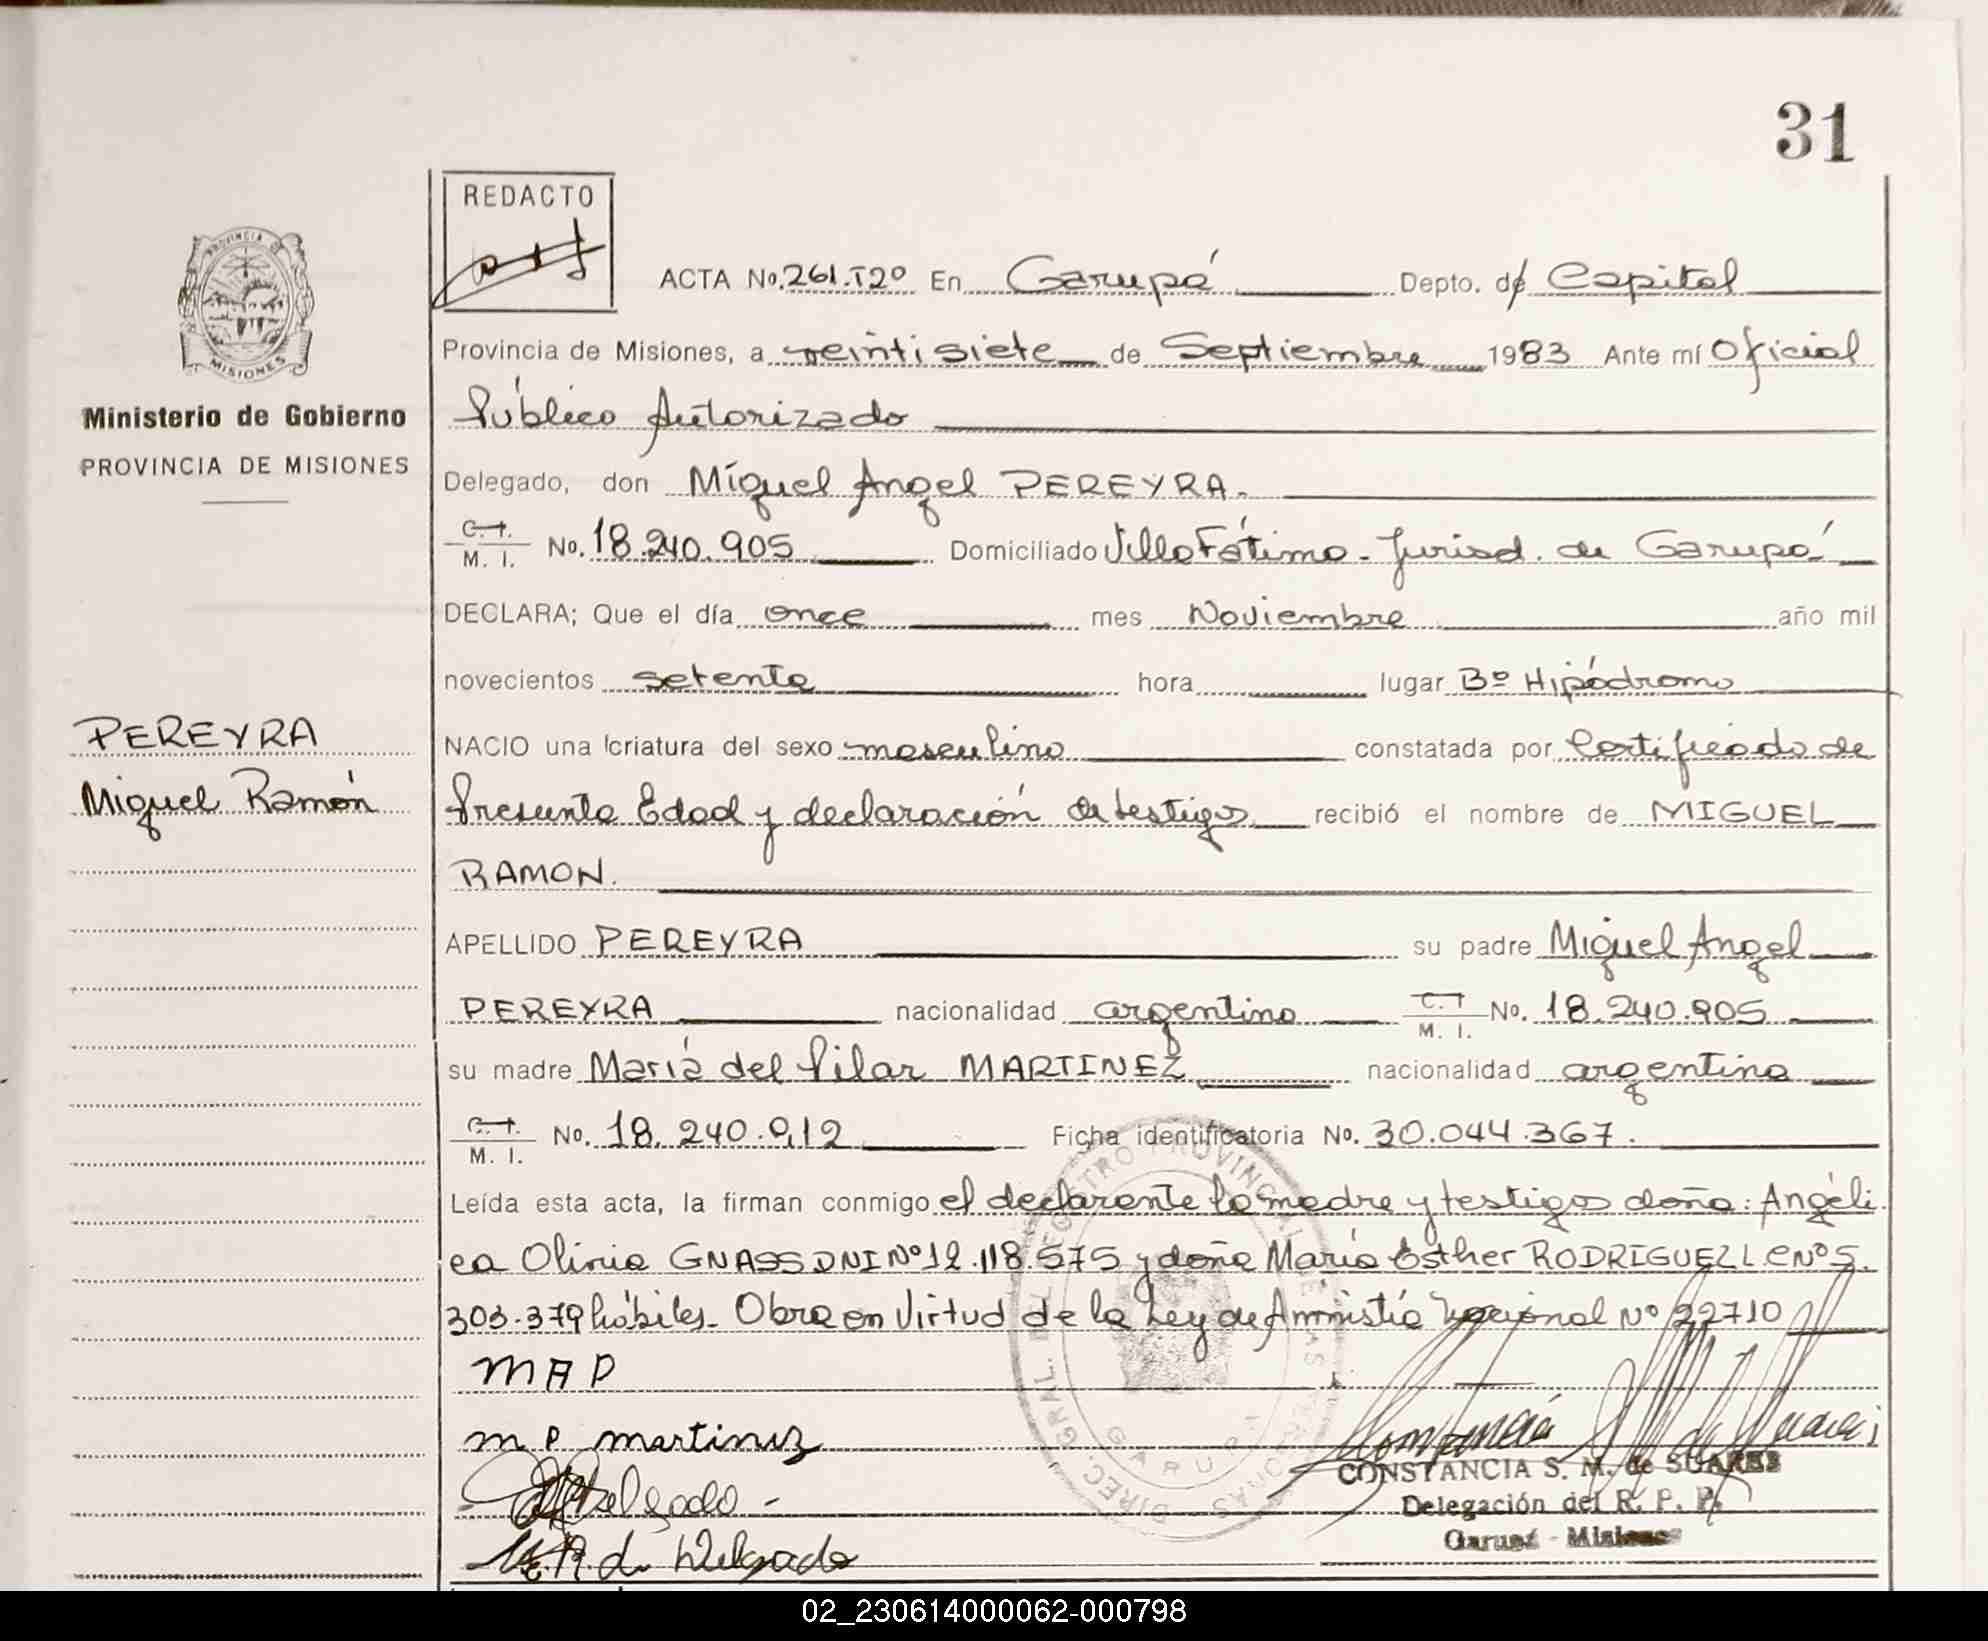 31
REDACTO
PROVINCIA DE
MISIONES
Ministerio de Gobierno
PROVINCIA DE MISIONES
PEREYRA
Miguel Ramón
ACTA No. 261.T2º En Garupá Depto. de Capital
Provincia de Misiones, a veintisiete de Septiembre 1983 Ante mí Oficial
Público Autorizado
Delegado, don Miguel Angel PEREYRA.
C. I. M. I. No. 18.240.905 Domiciliado Villa Fátima - Jurisd. de Garupá
DECLARA; Que el día once mes Noviembre año mil
novecientos setenta hora lugar Bº Hipódromo
NACIO una criatura del sexo masculino constatada por Certificado de
Presunta Edad y declaración de testigos recibió el nombre de MIGUEL
RAMON.
APELLIDO PEREYRA su padre Miguel Angel
PEREYRA nacionalidad argentina C. I. M. I. No. 18.240.905
su madre María del Pilar MARTINEZ nacionalidad argentina
C. I. M. I. No. 18.240.912 Ficha identificatoria No. 30.044.367.
Leída esta acta, la firman conmigo el declarante la madre y testigos doña: Angéli
ca Oliria GNASS DNI Nº 12.118.575 y doña María Esther RODRIGUEZ L.C Nº 5.
303.379 hábiles. Obra en Virtud de la Ley de Amnistía Nacional Nº 22710
MAP
m P martinez
Delgado -
M.E.R. de Delgado
DIREC. GRAL. DEL REGISTRO PROVINCIAL DE LAS PERSONAS
GARUPA
CONSTANCIA S. M. de SUAREZ
Delegación del R. P. P.
Garupá - Misiones
02_230614000062-000798